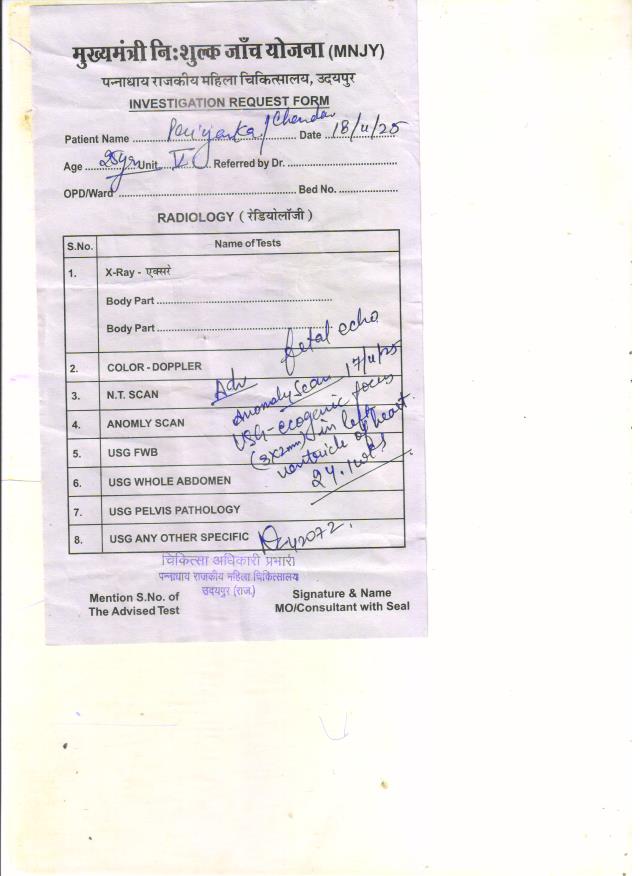 मुख्यमंत्री निःशुल्क जाँच योजना (MNJY)
पन्नाधाय राजकीय महिला चिकित्सालय, उदयपुर
INVESTIGATION REQUEST FORM
Patient Name Priyanka / Chandan Date 18/11/25
Age 25yrs Unit V Referred by Dr.
OPD/Ward Bed No.
RADIOLOGY ( रेडियोलॉजी )
S.No. Name of Tests
1. X-Ray - एक्सरे
Body Part
Body Part
fetal echo
2. COLOR - DOPPLER
Adv
3. N.T. SCAN
Anomaly Scan 17/11/25
4. ANOMLY SCAN
USG - ecogenic focus
5. USG FWB
(3x2mm) in left
ventricle of heart.
6. USG WHOLE ABDOMEN
24.1wks
7. USG PELVIS PATHOLOGY
8. USG ANY OTHER SPECIFIC
चिकित्सा अधिकारी प्रभारी
पन्नाधाय राजकीय महिला चिकित्सालय
उदयपुर (राज.)
Mention S.No. of
The Advised Test
Signature & Name
MO/Consultant with Seal